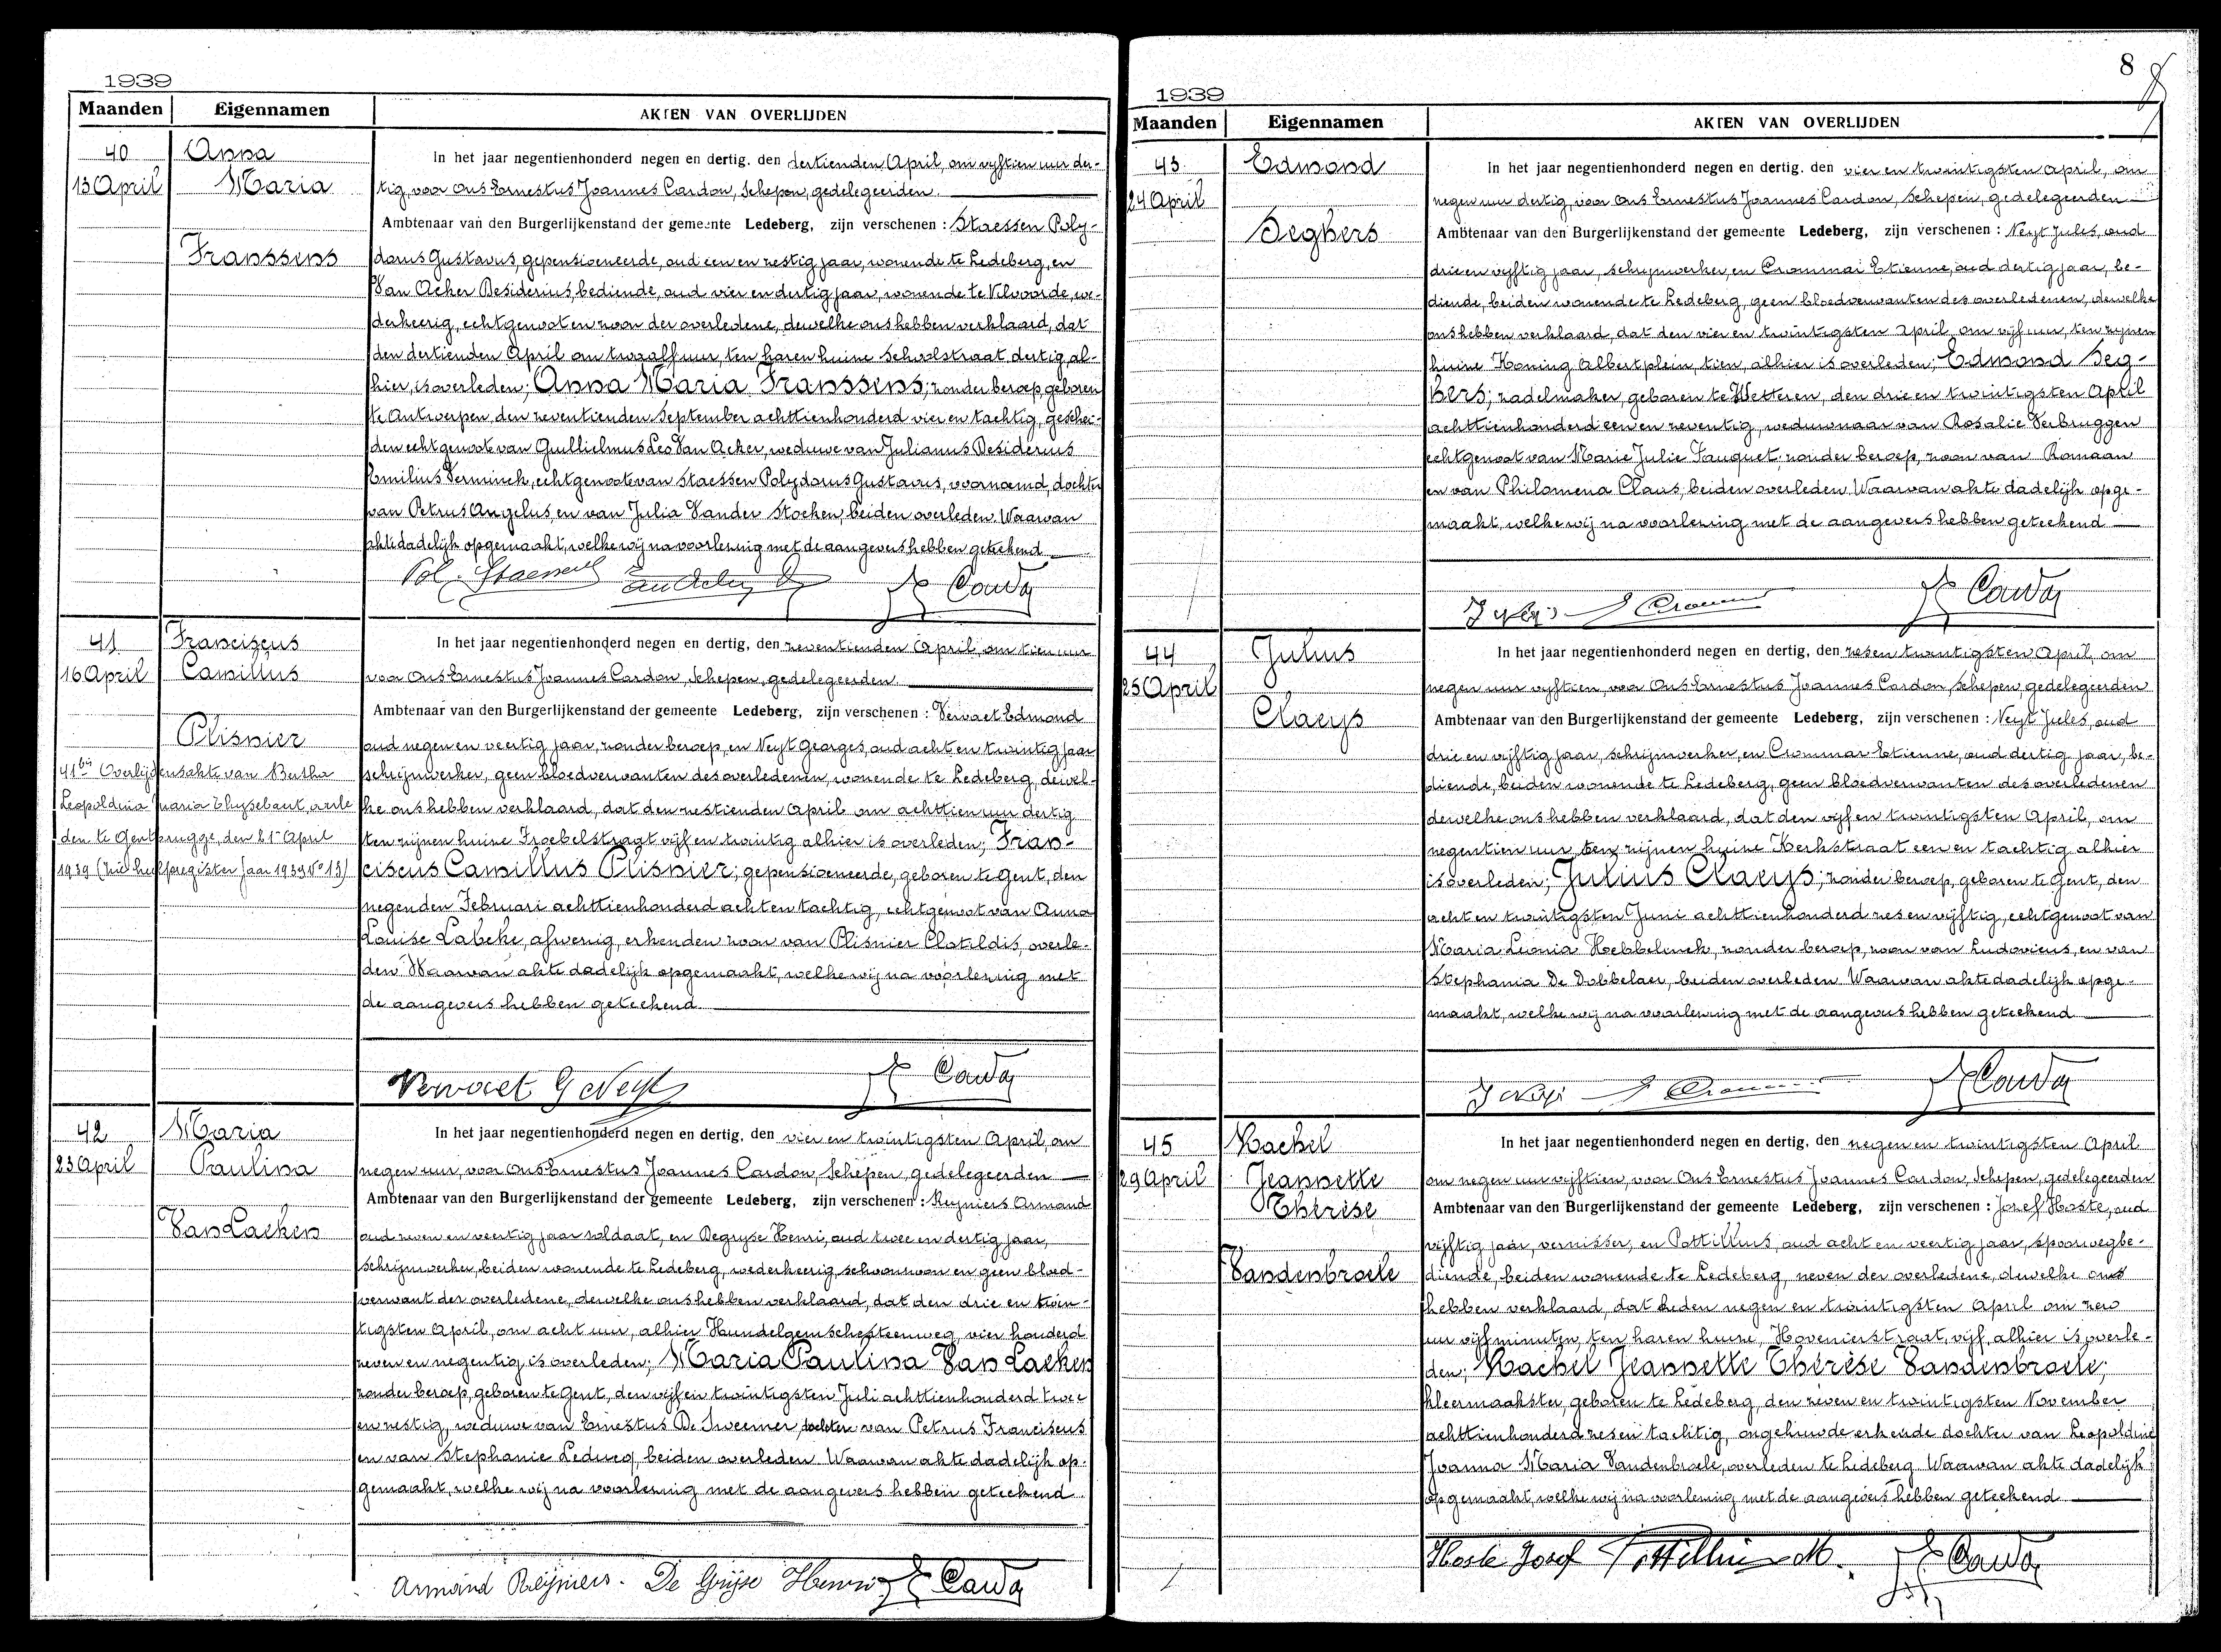 1939
Maanden Eigennamen AKTEN VAN OVERLIJDEN
40
13 April
Anna
Maria
Franssens
In het jaar negentienhonderd negen en dertig, den dertienden April, om vijftien uur der-
tig, voor Ons Ernestus Joannes Cardon, Schepen, gedelegeerden
Ambtenaar van den Burgerlijkenstand der gemeente Ledeberg, zijn verschenen : Staessen Poly-
dorus Gustavus, gepensioneerde, oud een en zestig jaar, wonende te Ledeberg, en
Van Acker Desiderius, bediende, oud vier en dertig jaar, wonende te Vilvoorde, we-
derkeerig, echtgenoot en zoon der overledene, dewelke ons hebben verklaard, dat
den dertienden April om twaalf uur, ten haren huize Schoolstraat dertig, al-
hier, is overleden; Anna Maria Franssens; zonder beroep, geboren
te Antwerpen, den zeventienden September achttienhonderd vier en tachtig, geschei-
den echtgenoote van Guillielmus Leo Van Acker, weduwe van Julianus Desiderius
Emilius Verminck, echtgenoote van Staessen Polydorus Gustavus, voornoemd, dochter
van Petrus Angelus, en van Julia Vander Stocken, beiden overleden. Waarvan
akte dadelijk opgemaakt, welke wij na voorlezing met de aangevers hebben geteekend
Pol. Staessens Van Acker D E Cardon
41
16 April
Franciscus
Camillus
Plisnier
41bis Overlijdensakte van Bertha
Leopoldina Maria Thysebaert, overle
den te Gentbrugge, den 21n April
1939 (zie hulpregister jaar 1939 No 13)
In het jaar negentienhonderd negen en dertig, den zeventienden April, om tien uur
voor Ons Ernestus Joannes Cardon, Schepen, gedelegeerden
Ambtenaar van den Burgerlijkenstand der gemeente Ledeberg, zijn verschenen : Vervaet Edmond
oud negen en veertig jaar, zonder beroep, en Neyt Georges, oud acht en twintig jaar
schrijnwerker, geen bloedverwanten des overledenen, wonende te Ledeberg, dewel-
ke ons hebben verklaard, dat den zestienden April om achttien uur dertig
ten zijnen huize Froebelstraat vijf en twintig alhier is overleden; Fran-
ciscus Camillus Plisnier; gepensioneerde, geboren te Gent, den
negenden Februari achttienhonderd acht en tachtig, echtgenoot van Anna
Louise Labeke, afwezig, erkenden zoon van Plisnier Clotildis, overle-
den. Waarvan akte dadelijk opgemaakt, welke wij na voorlezing met
de aangevers hebben geteekend.
Vervaet G Neyt E Cardon
42
23 April
Maria
Paulina
Van Laeken
In het jaar negentienhonderd negen en dertig, den vier en twintigsten April, om
negen uur, voor Ons Ernestus Joannes Cardon, Schepen, gedelegeerden
Ambtenaar van den Burgerlijkenstand der gemeente Ledeberg, zijn verschenen : Reyniers Armand
oud zeven en veertig jaar soldaat, en Degryse Henri, oud twee en dertig jaar,
schrijnwerker, beiden wonende te Ledeberg, wederkeerig, schoonzoon en geen bloed-
verwant der overledene, dewelke ons hebben verklaard, dat den drie en twin-
tigsten April, om acht uur, alhier Hundelgemschesteenweg, vier honderd
zeven en negentig, is overleden; Maria Paulina Van Laeken
zonder beroep, geboren te Gent, den vijf en twintigsten Juli achttienhonderd twee
en zestig, weduwe van Ernestus De Sweemer, dochter van Petrus Franciscus
en van Stephanie Ledueq, beiden overleden. Waarvan akte dadelijk op-
gemaakt, welke wij na voorlezing met de aangevers hebben geteekend.
Armand Reyniers. De Gryse Henri E Cardon
8
1939
Maanden Eigennamen AKTEN VAN OVERLIJDEN
43
24 April
Edmond
Seghers
In het jaar negentienhonderd negen en dertig, den vier en twintigsten April, om
negen uur dertig, voor Ons Ernestus Joannes Cardon, Schepen, gedelegeerden
Ambtenaar van den Burgerlijkenstand der gemeente Ledeberg, zijn verschenen : Neyt Jules, oud
drie en vijftig jaar, schrijnwerker, en Crommar Etienne, oud dertig jaar, be-
diende, beiden wonende te Ledeberg, geen bloedverwanten des overledenen, dewelke
ons hebben verklaard, dat den vier en twintigsten April om vijf uur, ten zijnen
huize Koning Albertplein tien, alhier is overleden; Edmond Seg-
hers; zadelmaker, geboren te Wetteren, den drie en twintigsten April
achttienhonderd een en zeventig, weduwnaar van Rosalie Verbruggen
echtgenoot van Marie Julie Fauquet; zonder beroep, zoon van Romaan
en van Philomena Claus, beiden overleden. Waarvan akte dadelijk opge-
maakt, welke wij na voorlezing met de aangevers hebben geteekend
J Neyt E Crommar E Cardon
44
25 April
Julius
Claeys
In het jaar negentienhonderd negen en dertig, den zesen twintigsten April, om
negen uur vijftien, voor Ons Ernestus Joannes Cardon, Schepen, gedelegeerden
Ambtenaar van den Burgerlijkenstand der gemeente Ledeberg, zijn verschenen : Neyt Jules, oud
drie en vijftig jaar, schrijnwerker, en Crommar Etienne, oud dertig jaar, be-
diende, beiden wonende te Ledeberg, geen bloedverwanten des overledenen
dewelke ons hebben verklaard, dat den vijf en twintigsten April, om
negentien uur, ten zijnen huize Kerkstraat een en tachtig alhier
is overleden; Julius Claeys; zonder beroep, geboren te Gent, den
acht en twintigsten Juni achttienhonderd zes en vijftig, echtgenoot van
Maria Leonia Hebbelinck, zonder beroep, zoon van Ludovicus, en van
Stephania De Dobbelaer, beiden overleden. Waarvan akte dadelijk opge-
maakt, welke wij na voorlezing met de aangevers hebben geteekend
J Neyt E Crommar E Cardon
45
29 April
Rachel
Jeannette
Thérèse
Vandenbroele
In het jaar negentienhonderd negen en dertig, den negen en twintigsten April
om negen uur vijftien, voor Ons Ernestus Joannes Cardon, Schepen, gedelegeerden
Ambtenaar van den Burgerlijkenstand der gemeente Ledeberg, zijn verschenen : Jozef Hoste, oud
vijftig jaar, vernisser, en Pottillius, oud acht en veertig jaar, spoorwegbe-
diende, beiden wonende te Ledeberg, neven der overledene, dewelke ons
hebben verklaard, dat heden negen en twintigsten April om zero
uur vijf minuten, ten haren huize, Hovenierstraat, vijf, alhier is overle-
den; Rachel Jeannette Thérèse Vandenbroele;
kleermaakster, geboren te Ledeberg, den zeven en twintigsten November
achttienhonderd zes en tachtig, ongehuwde erkende dochter van Leopoldina
Joanna Maria Vandenbroele, overleden te Ledeberg. Waarvan akte dadelijk
opgemaakt, welke wij na voorlezing met de aangevers hebben geteekend
Hoste Jozef Pottillius M. E Cardon